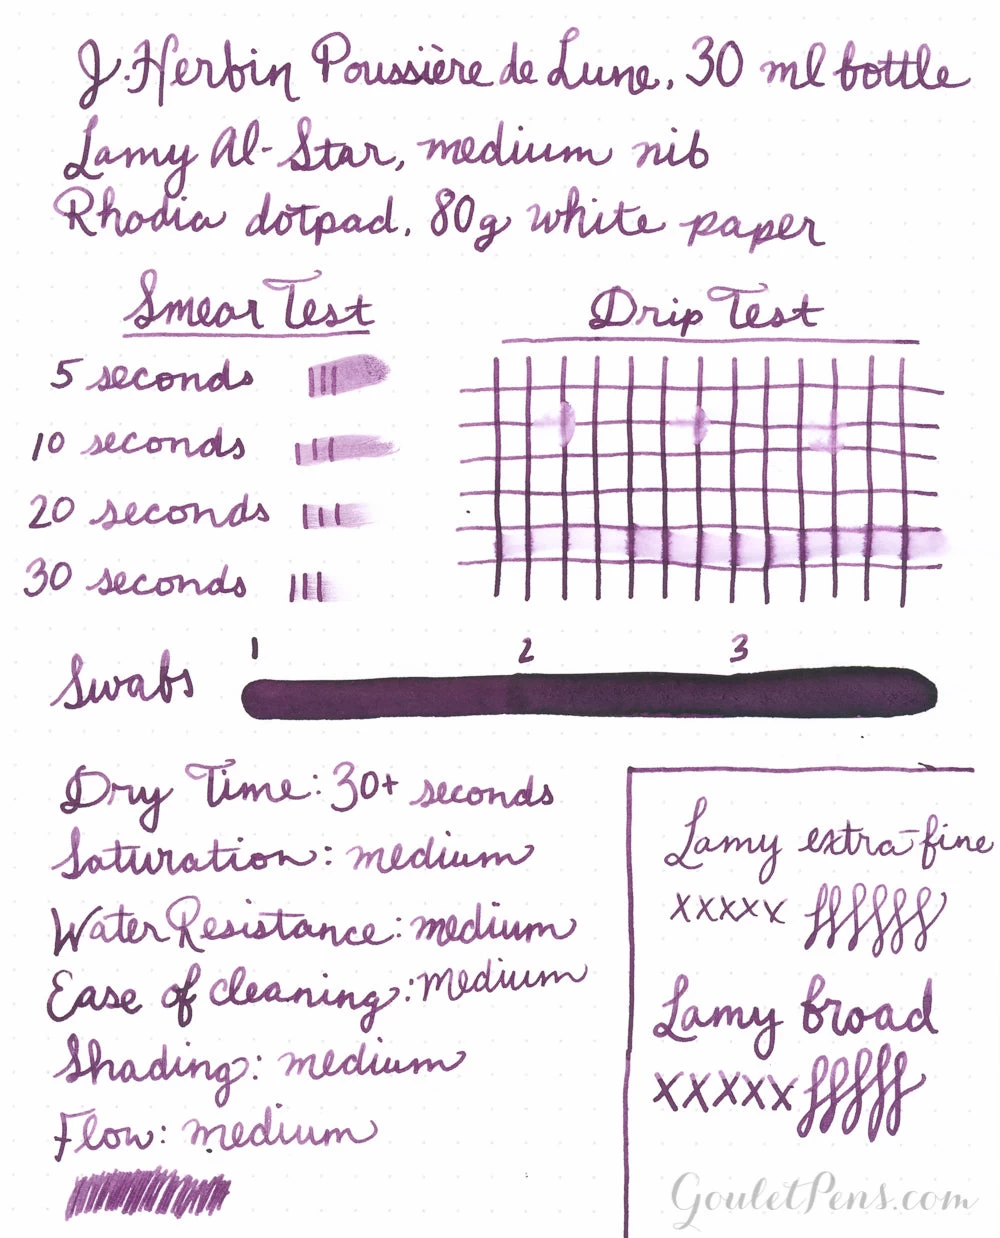 J. Herbin Poussière de Lune, 30 ml bottle
Lamy Al-Star, medium nib
Rhodia dotpad, 80g white paper
Smear Test
5 seconds
10 seconds
20 seconds
30 seconds
Drip Test
Swabs
1 2 3
Dry Time: 30+ seconds
Saturation: medium
Water Resistance: medium
Ease of cleaning: medium
Shading: medium
Flow: medium
Lamy extra-fine
xxxxx ffffff
Lamy broad
xxxxx fffff
GouletPens.com